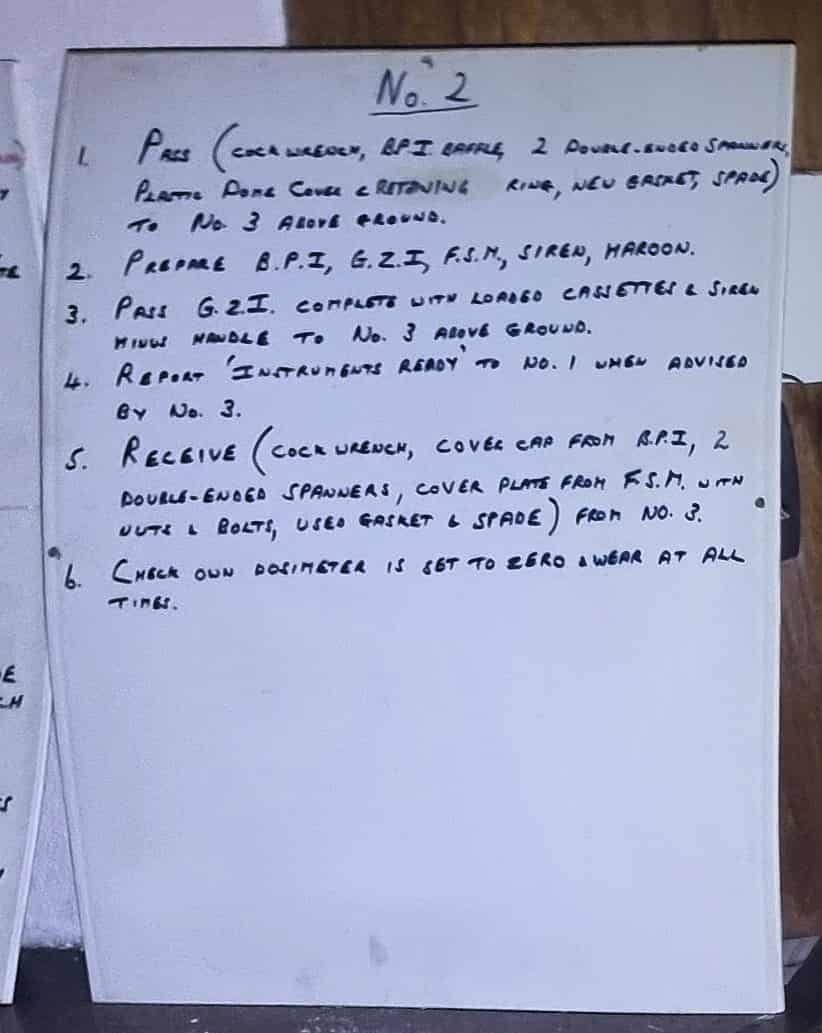 No. 2
1. PASS (COCK WRENCH, B.P.I BAFFLE, 2 DOUBLE-ENDED SPANNERS,
PLASTIC DOME COVER & RETAINING RING, NEW GASKET, SPADE)
TO No. 3 ABOVE GROUND.
2. PREPARE B.P.I, G.Z.I, F.S.M., SIREN, MAROON.
3. PASS G.Z.I. COMPLETE WITH LOADED CASSETTES & SIREN
MINUS HANDLE TO No. 3 ABOVE GROUND.
4. REPORT 'INSTRUMENTS READY' TO NO. 1 WHEN ADVISED
BY No. 3.
5. RECEIVE (COCK WRENCH, COVER CAP FROM B.P.I, 2
DOUBLE-ENDED SPANNERS, COVER PLATE FROM F.S.M. WITH
NUTS & BOLTS, USED GASKET & SPADE) FROM NO. 3.
6. CHECK OWN DOSIMETER IS SET TO ZERO & WEAR AT ALL
TIMES.